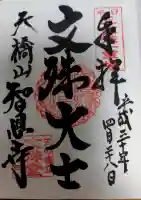 奉拝
平成三十年
四月二十八日
文殊大士
天橋山
智恩寺